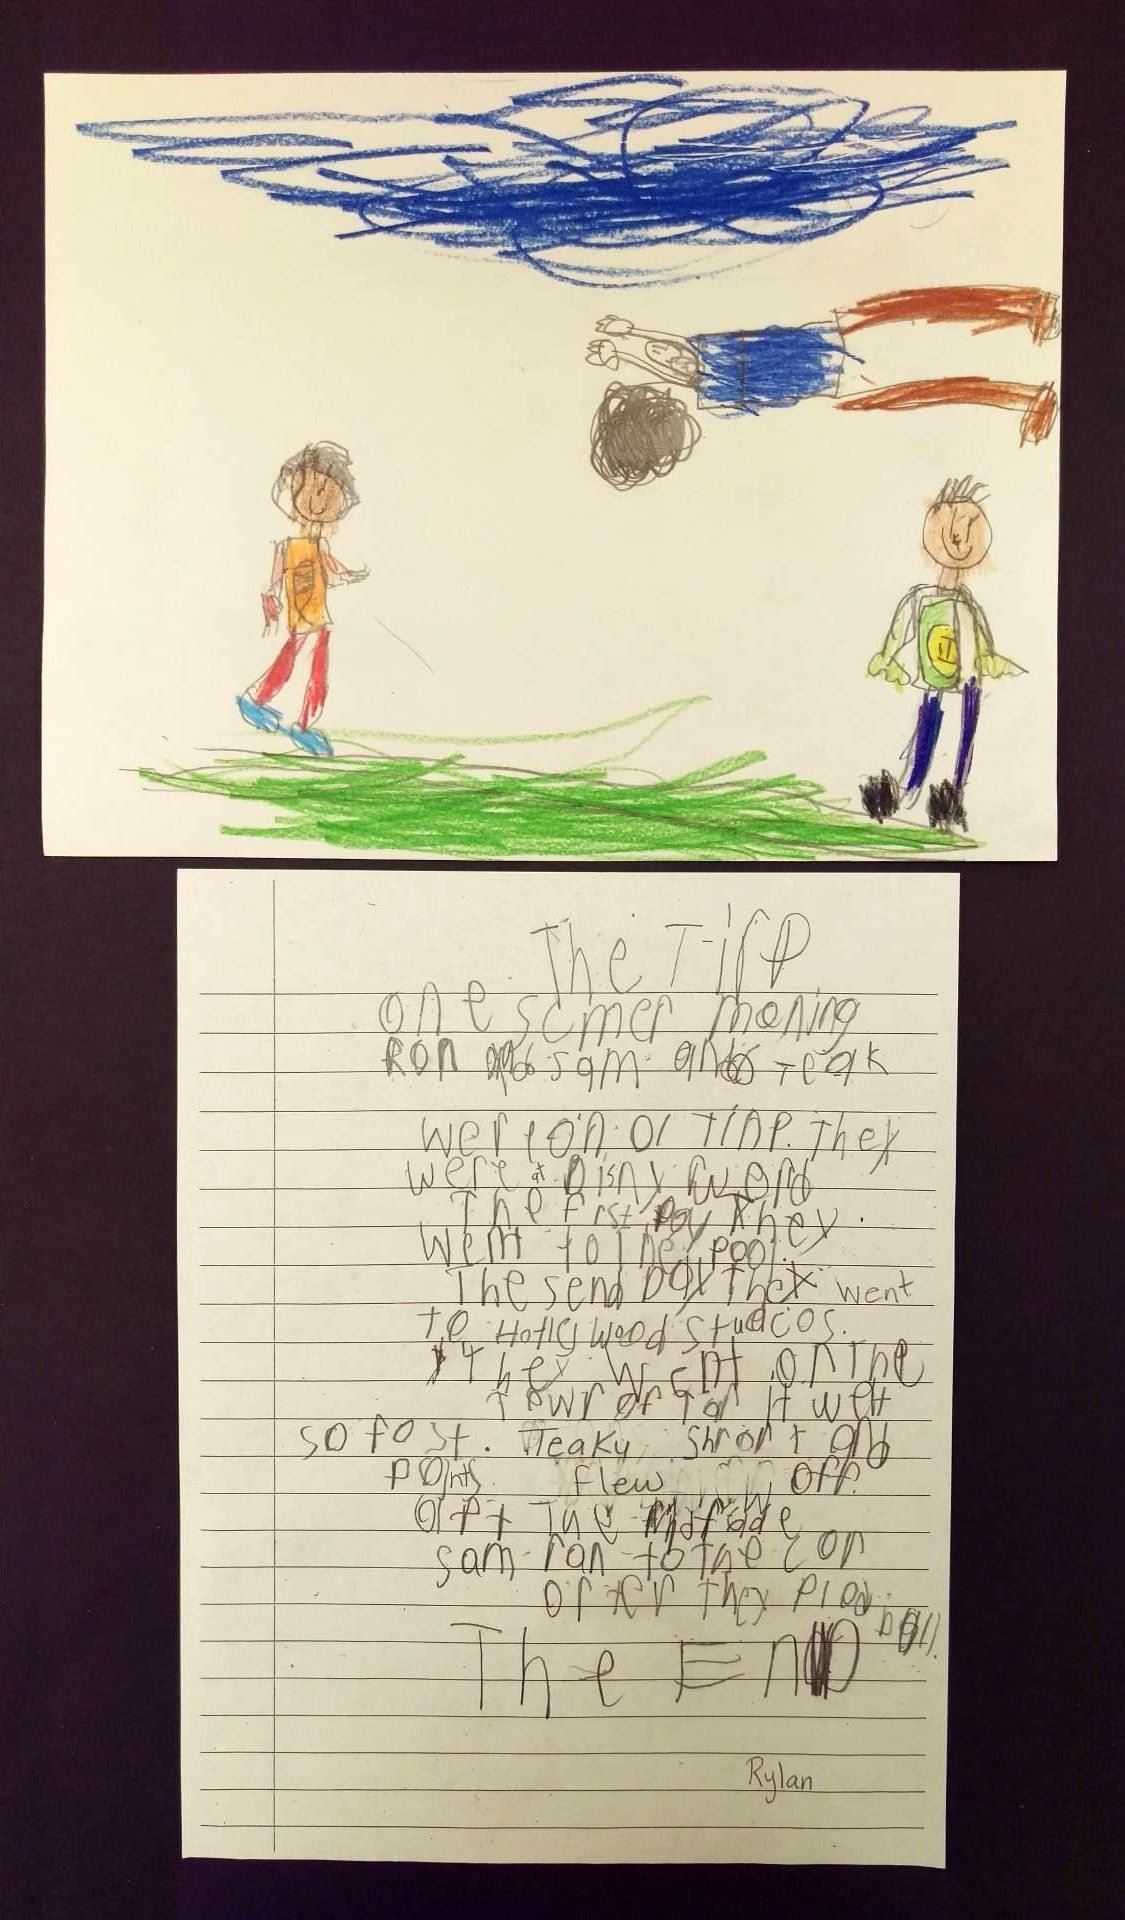 The Tirp
one sumer moning
Ron and sam and Teak
wer on or Tirp. They
were at Disny Rwerld
The frst Day They
went to The pool.
The send Day They went
to Hollywood studcos.
They went on The
Tewr of Tar it wett
so fast. Teaky shrort and
points flew off.
Aft The ride
sam ran to The cor
arter They plad ball.
The End
Rylan